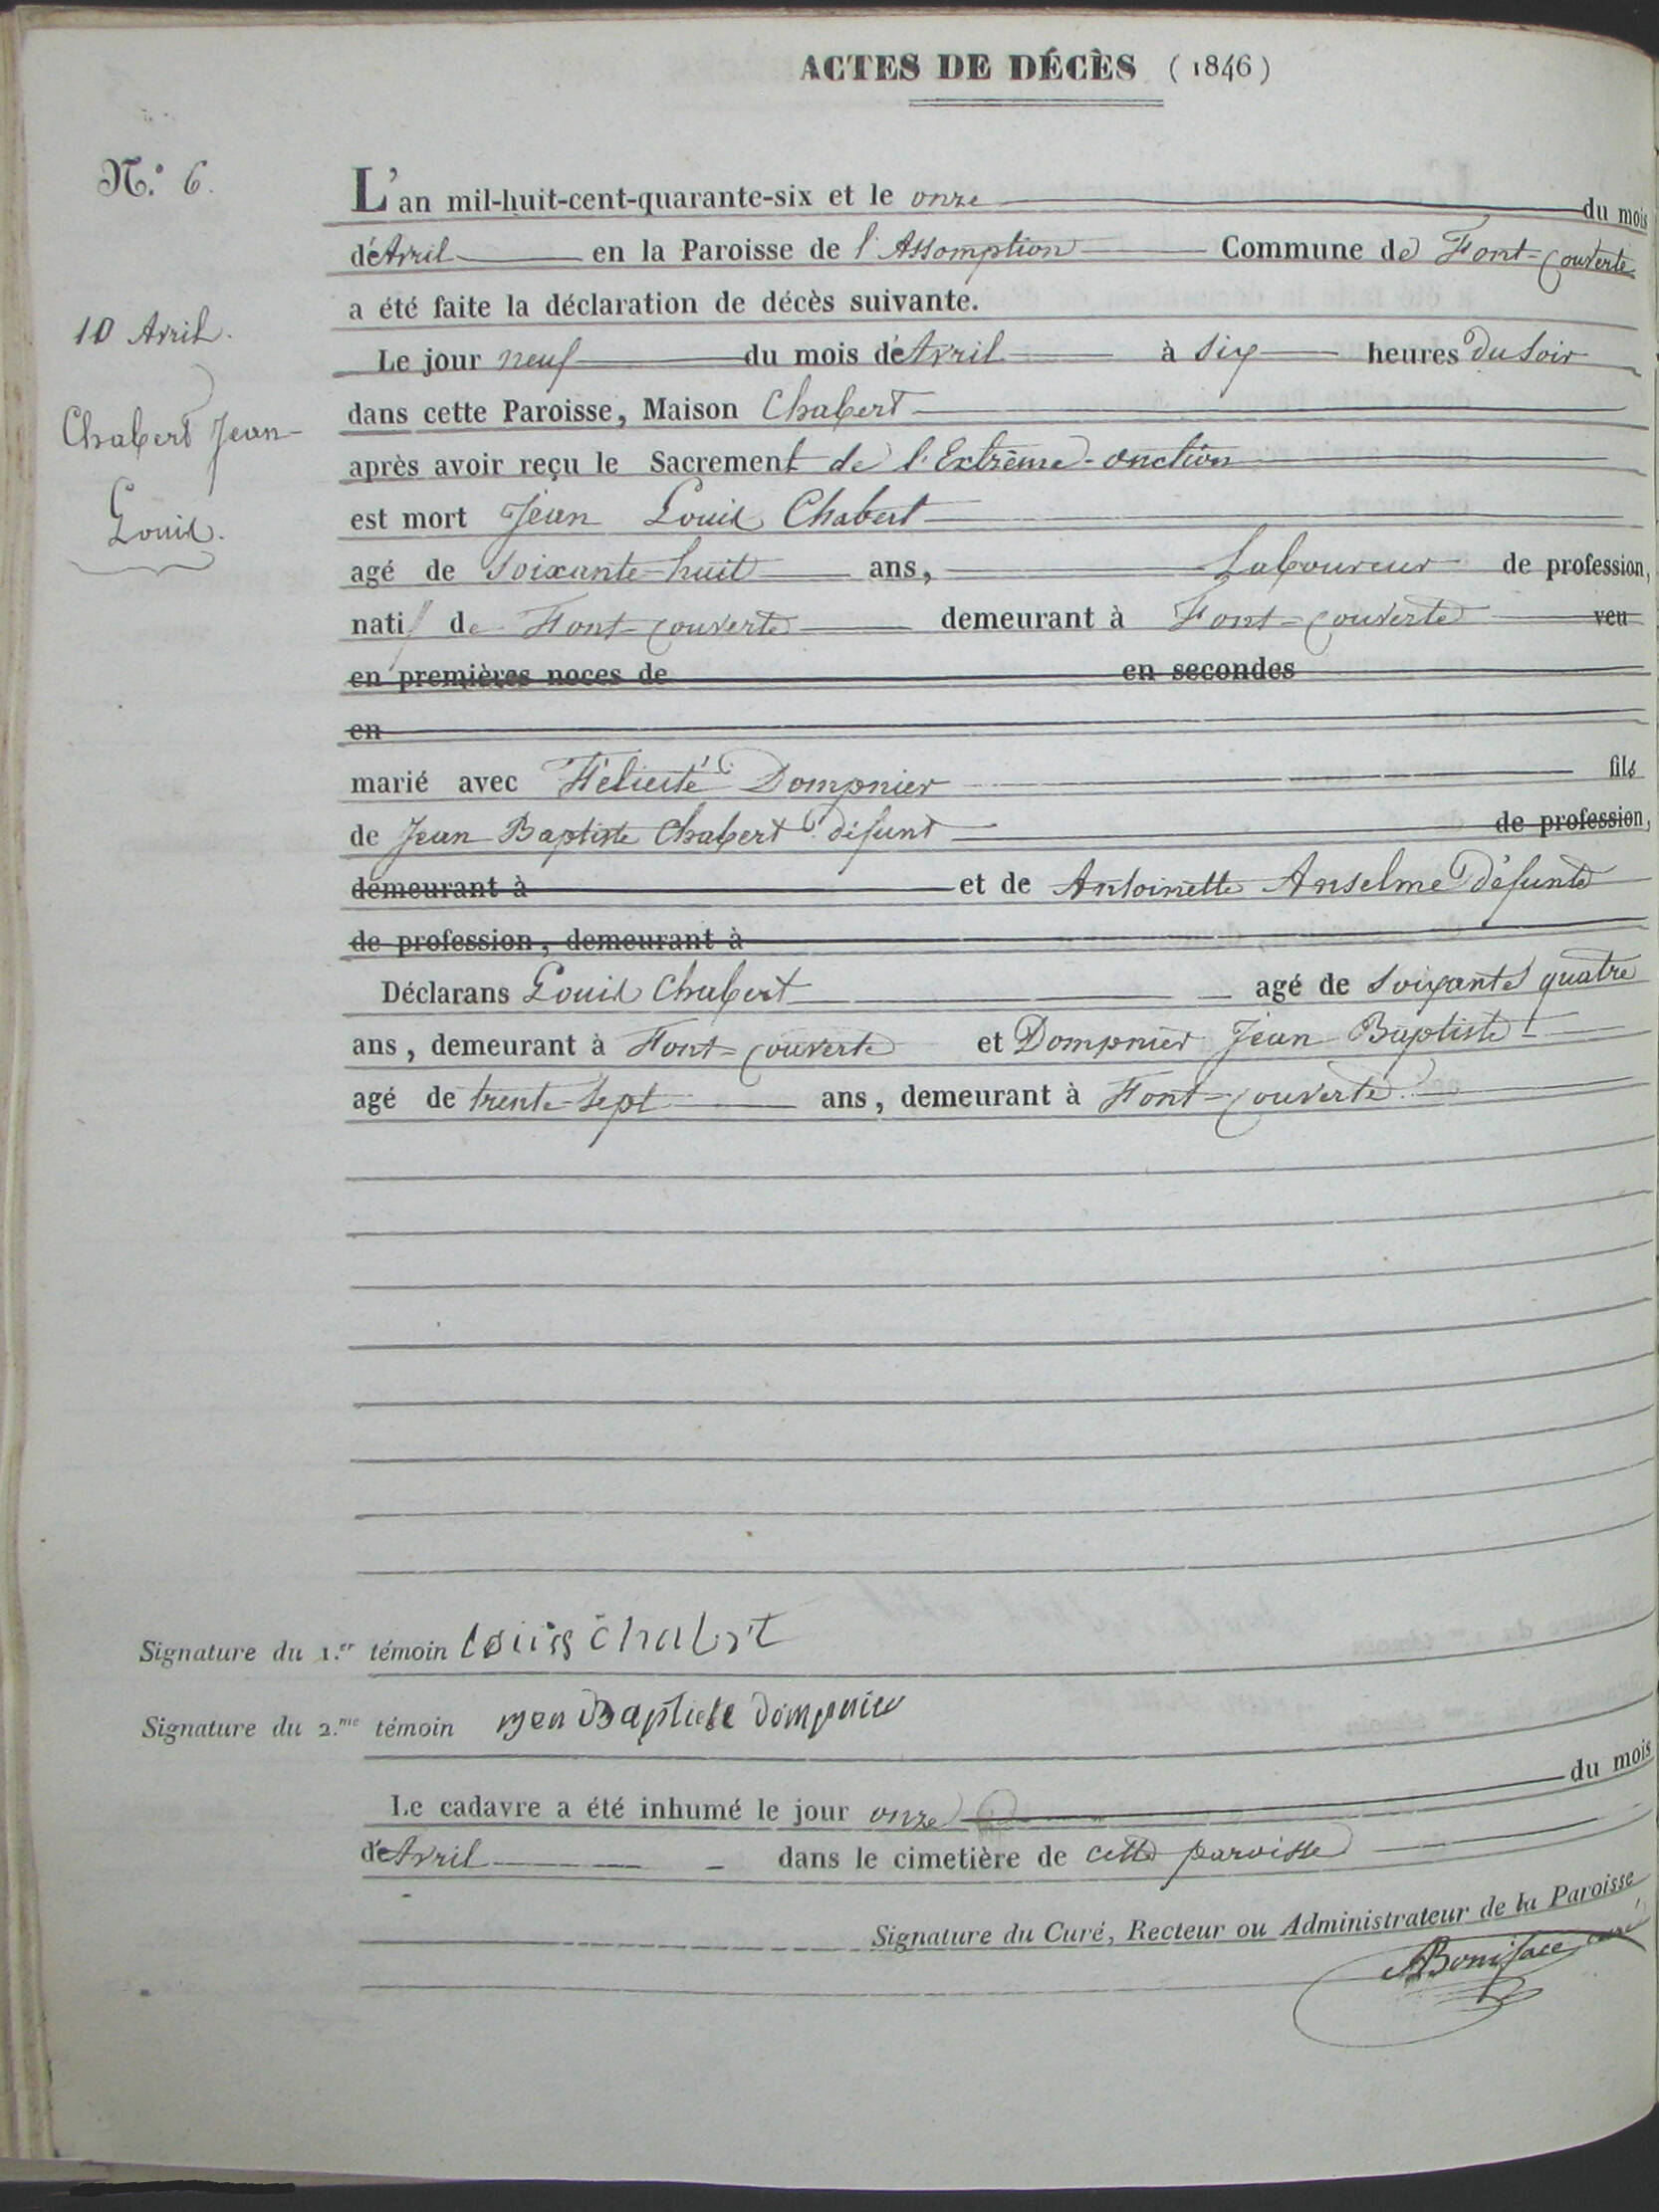 ACTES DE DÉCÈS (1846)
N.° 6.
L'an mil-huit-cent-quarante-six et le onze du mois
d'Avril en la Paroisse de l'Assomption Commune de Font-couverte
a été faite la déclaration de décès suivante.
10 Avril.
Le jour neuf du mois d'Avril à six heures du soir
dans cette Paroisse, Maison Chabert
Chabert Jean-
après avoir reçu le Sacrement de l'Extrême-onction
est mort Jean Louis Chabert
Louis.
agé de soixante-huit ans, Laboureur de profession,
natif de Font-couverte demeurant à Font-couverte veu
en premières noces de en secondes
en
marié avec Félicité Dompnier fils
de Jean Baptiste Chabert défunt de profession,
demeurant à et de Antoinette Anselme défunte
de profession, demeurant à
Déclarans Louis Chabert agé de soixante quatre
ans, demeurant à Font-couverte et Dompnier Jean Baptiste
agé de trente-sept ans, demeurant à Font-couverte.
Signature du 1.er témoin Louis chabert
Signature du 2.me témoin jean Baptiste dompnier
Le cadavre a été inhumé le jour onze du mois
d'Avril dans le cimetière de cette paroisse
Signature du Curé, Recteur ou Administrateur de la Paroisse
Boniface, curé